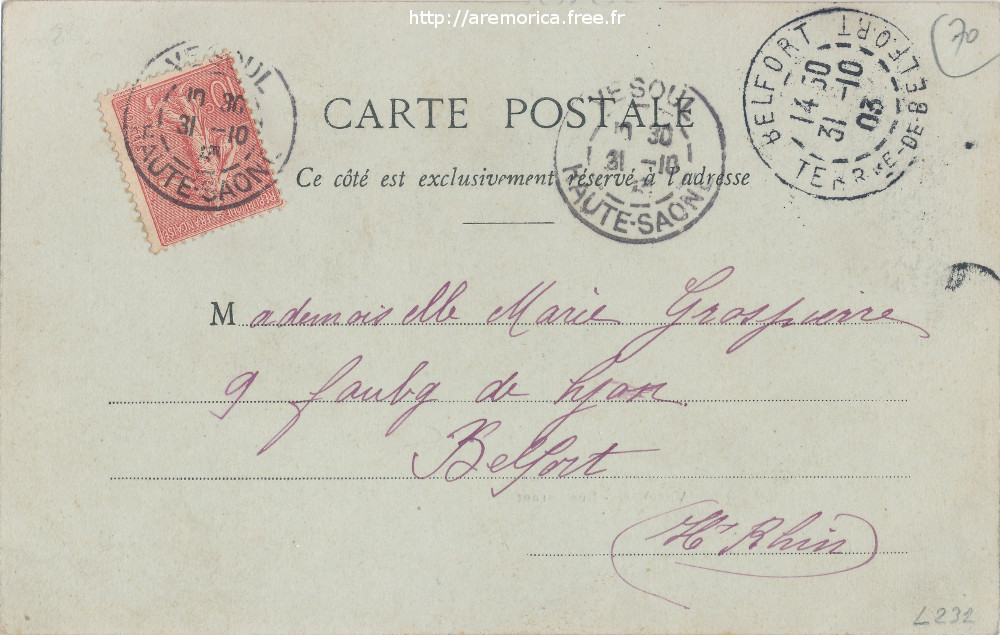 http://aremorica.free.fr
70
VESOUL
10 30
31 -10
HAUTE-SAONE
RÉPUBLIQUE FRANÇAISE
VESOUL
10 30
31 -10
HAUTE-SAONE
BELFORT BELFORT
14 50
31 -10
03
TERRRE-DE-B
CARTE POSTALE
Ce côté est exclusivement réservé à l'adresse
Mademoiselle Marie Grospierre
9 faubg de Lyon
Belfort
(Ht Rhin)
L232